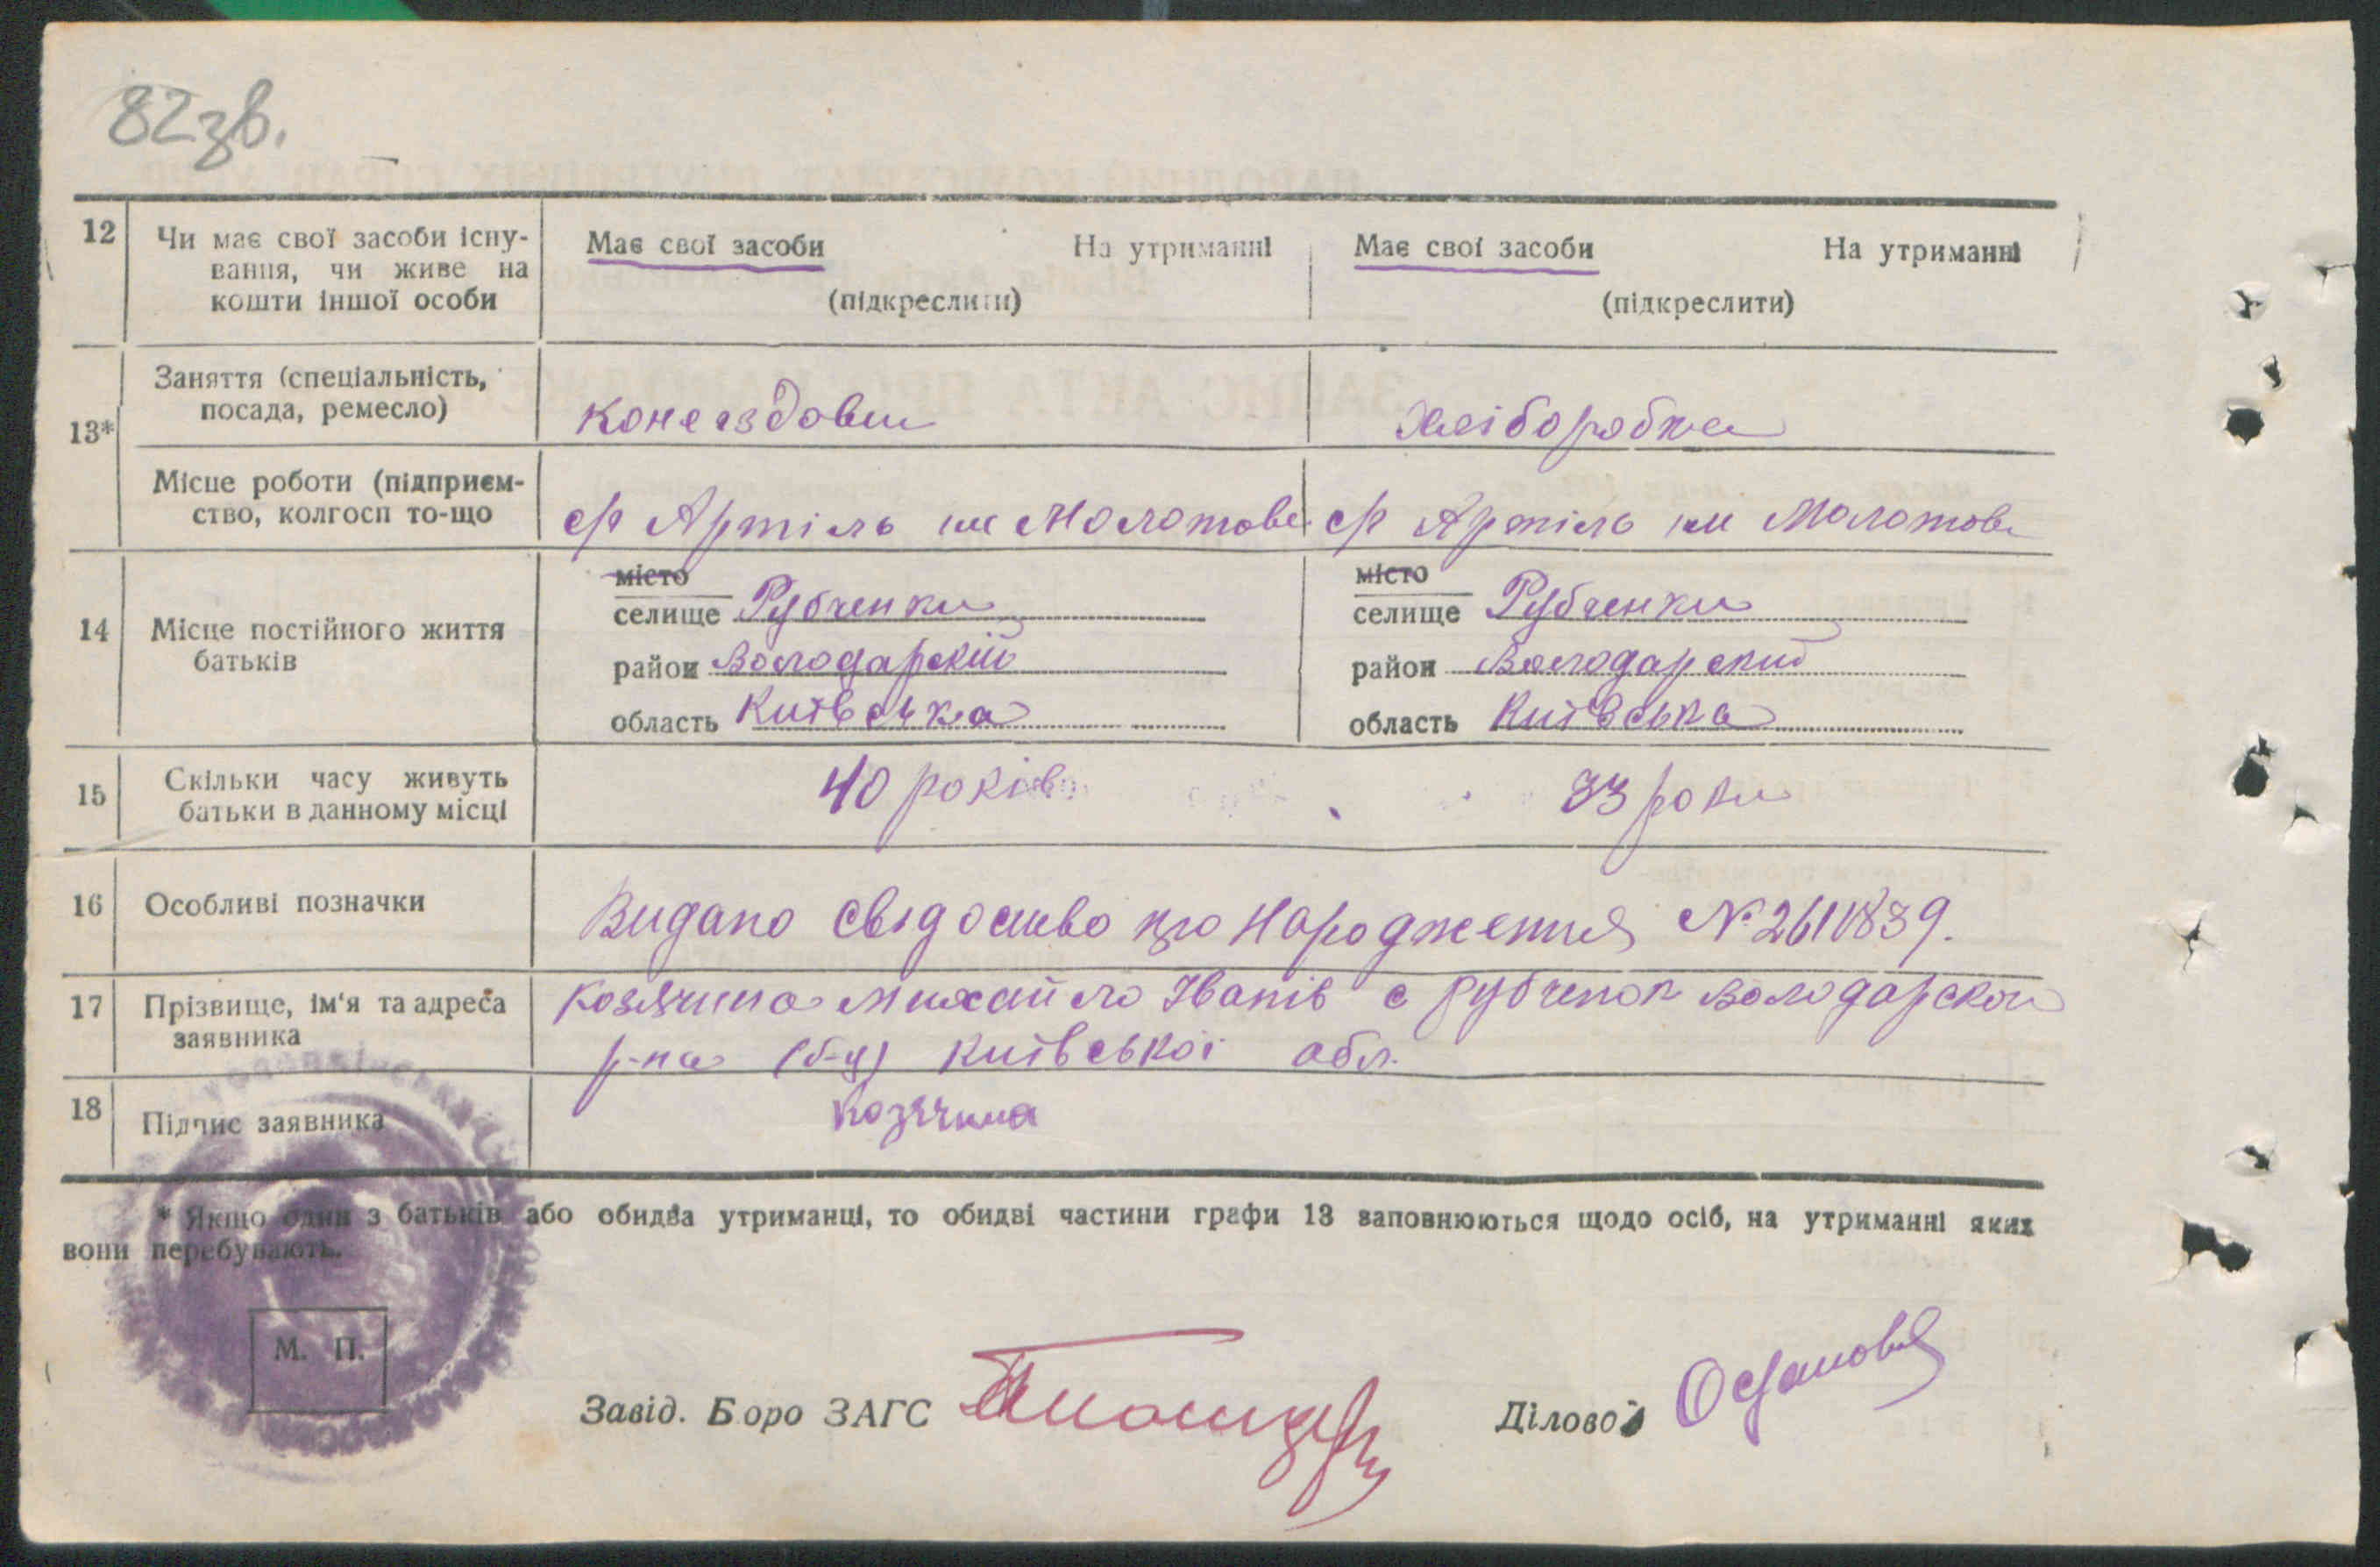 82зв.
12 Чи має свої засоби існу- Має свої засоби На утриманні Має свої засоби На утриманні
вання, чи живе на
кошти іншої особи (підкреслити) (підкреслити)
Заняття (спеціальність,
посада, ремесло) хліборобка
13*
Місце роботи (підприєм-
ство, колгосп то-що с/г Артіль ім Молотова с/г Артіль ім Молотова
місто місто
селище Рубченки селище Рубченки
14 Місце постійного життя
батьків район Володарский район Володарский
область Київська область Київська
15 Скільки часу живуть 40 років 33 роки
батьки в данному місці
16 Особливі позначки Видано свідоцтво про Народження № 2611839.
17 Прізвище, ім'я та адреса Козячина Михайло Іванів с Рубченок Володарского
заявника р-на (б-ц) Київської обл.
18 Підпис заявника Козячина
* Якщо один з батьків або обидва утриманці, то обидві частини графи 13 заповнюються щодо осіб, на утриманні яких
вони перебувають.
М. П.
Завід. Боро ЗАГС Ділово